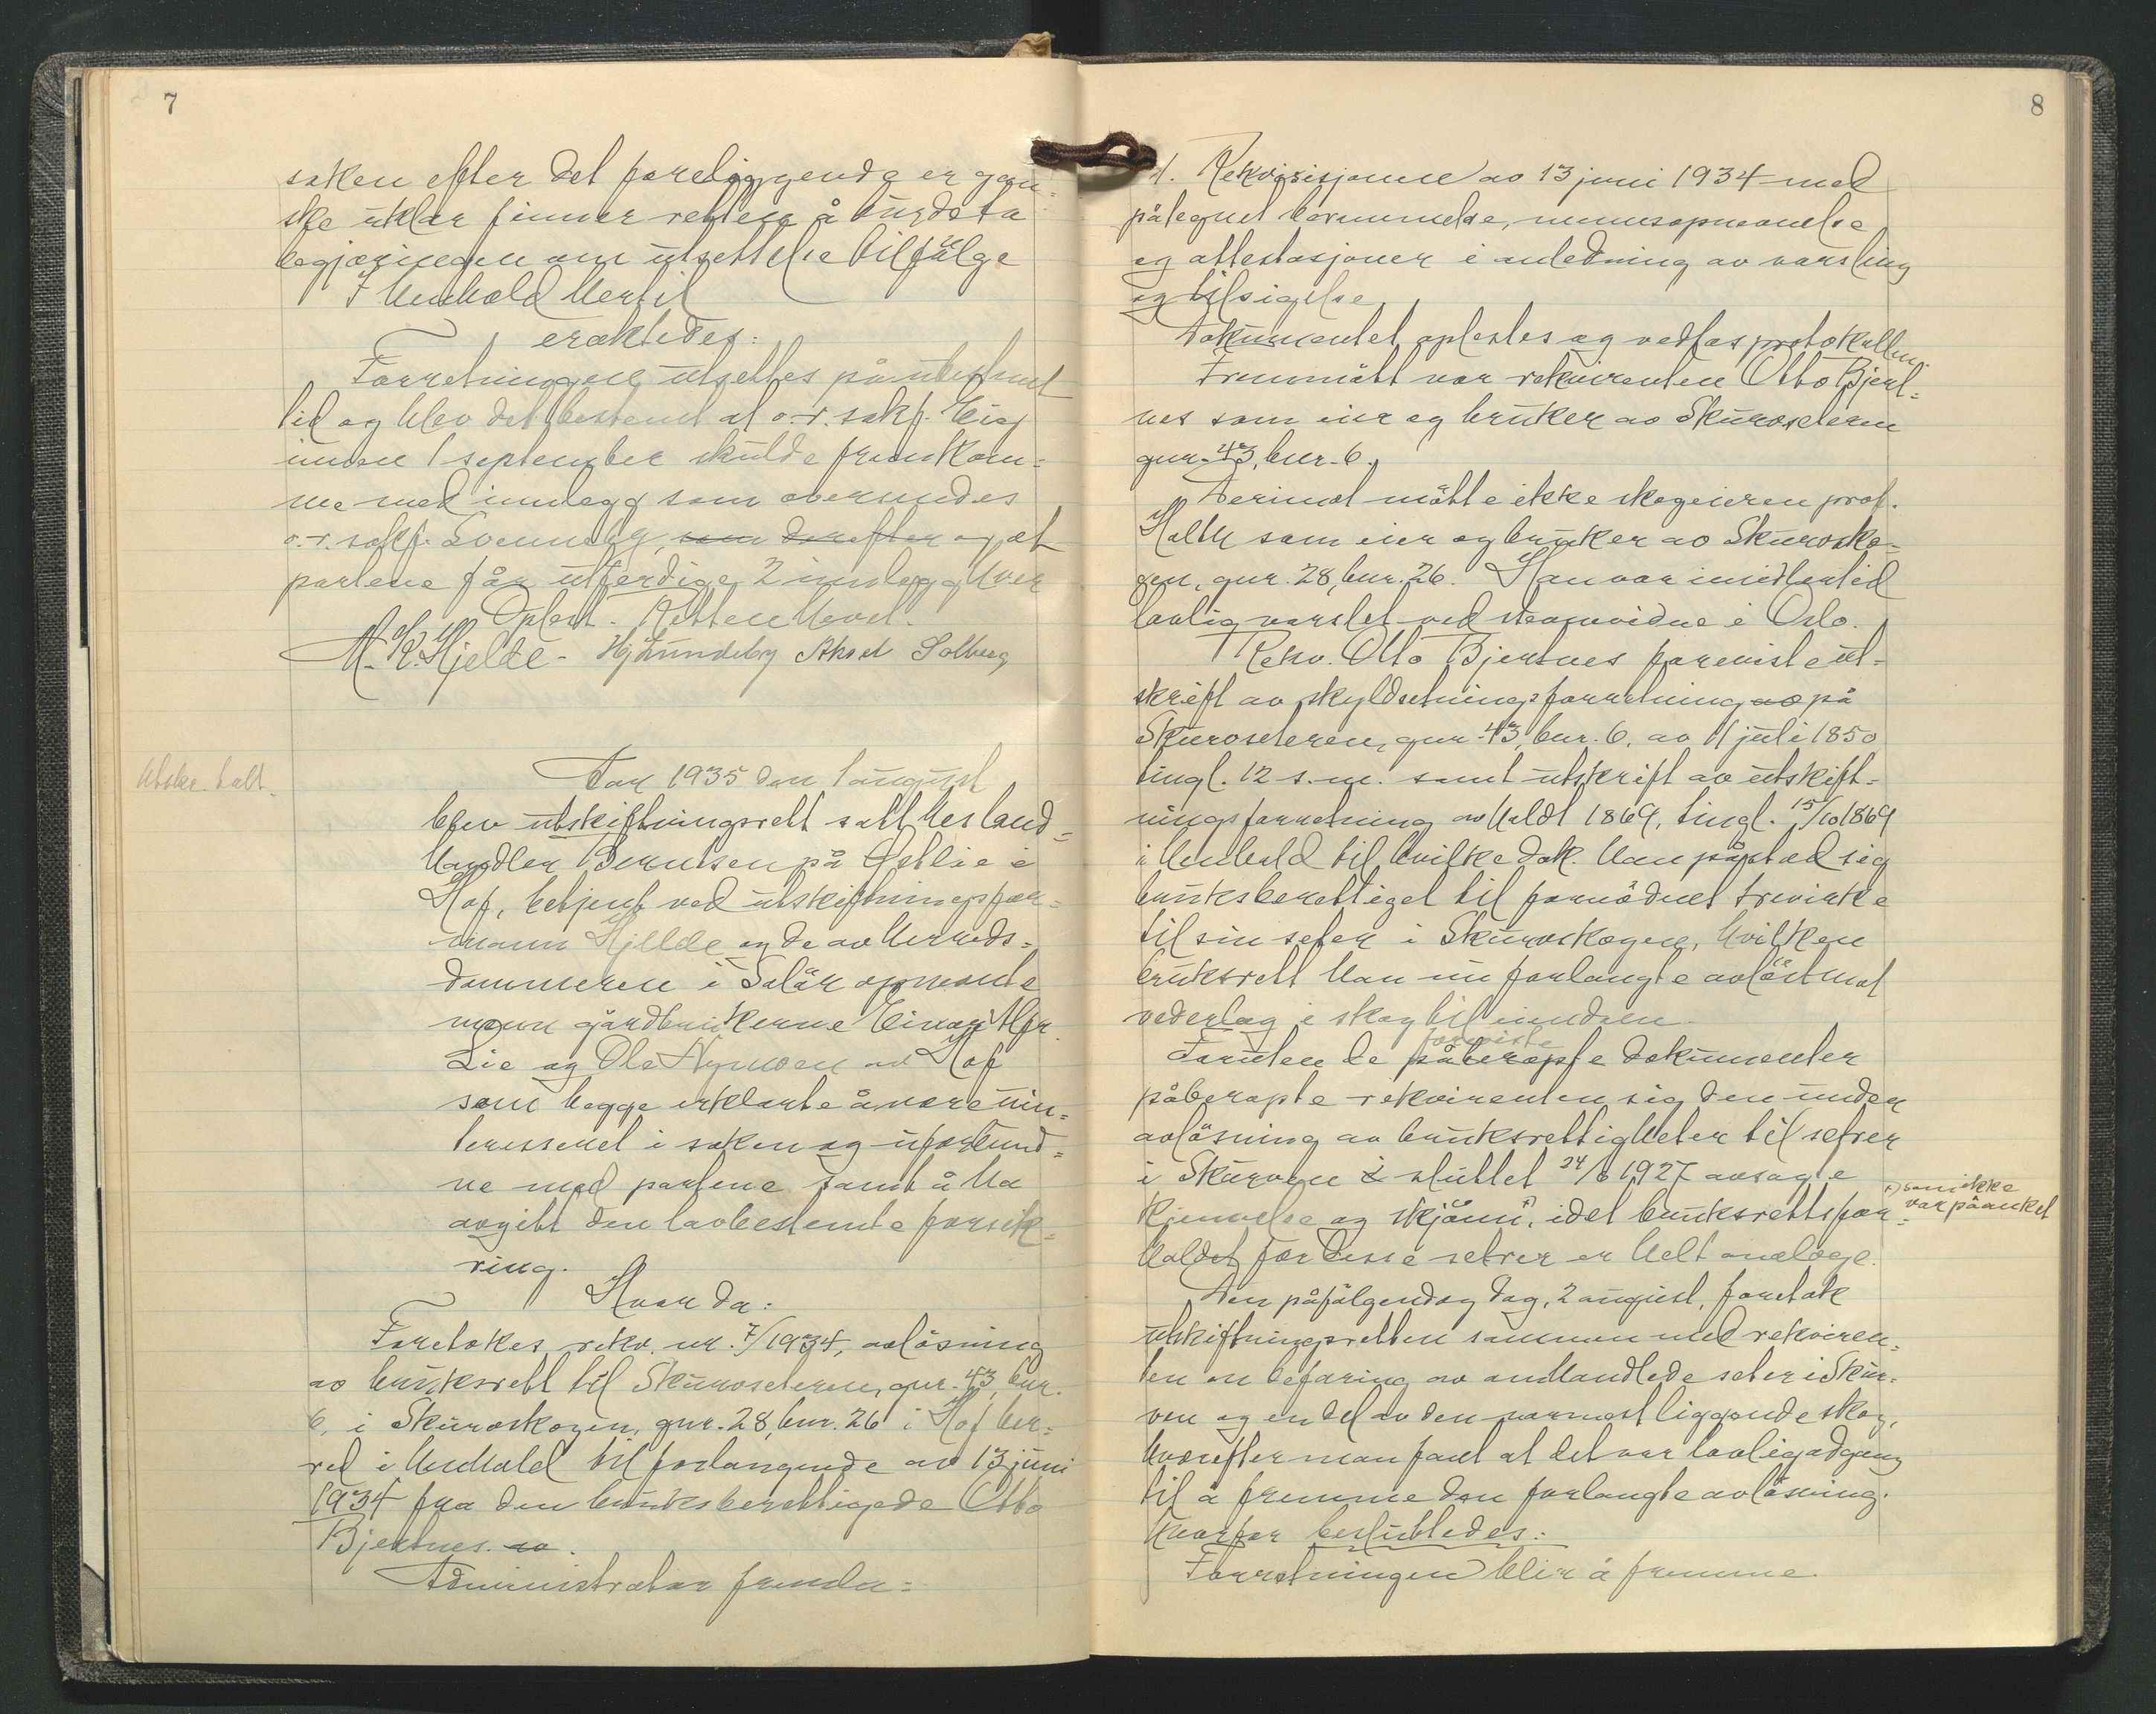 7
saken efter det foreliggende er gan-
ske uklar finner retten å burde ta
begjæringen om utsettelse tilfølge
I henhold hertil
eraktedes:
Forretningen utsettes på ubestemt
tid og blev det bestemt at o.r.sakf. Eig
innen 1 september skulde fremkom-
me med innlegg som oversendes
o.r.sakf. Svenneby, som derefter og at
partene får utferdige 2 innlegg hver
Oplest. Retten hevet.
M. K. Hjelde - Hj Sunndeby Aksel Solberg
Utskr. betalt.
Aar 1935 den 1 august
blev utskiftningsrett satt hos land-
handler Berntsen på Østlie i
Hof, betjent ved utskiftningsfor-
mann Hjelde og de av herreds-
dommeren i Solør opnevnte
menn gårdbrukerne Einar Hfr.
Lie og Ole Nymoen av Hof
som begge erklærte å være uin-
teressert i saken og uforbund-
ne med partene samt å ha
avgitt den lovbestemte forsik-
ring.
Hvor da:
Foretokes rekv. nr. 7/1934, avløsning
av bruksrett til Skurvseteren, gnr. 43, bnr.
6, i Skurvskogen, gnr. 28, bnr. 26 i Hof her-
red i henhold til forlangende av 13 juni
1934 fra den bruksberettigede Otto
Bjertnes. av.
Administrator fremla:
8
1. Rekvisisjonen av 13 juni 1934 med
påtegnet berammelse, mannsopnevnelse
og attestasjoner i anledning av varsling
og tilsigelse
Dokumentet oplestes og vedlas protokollen.
Fremmøtt var rekvirenten Otto Bjert-
nes som eier og bruker av Skurvseteren
gnr. 43, bnr. 6.
Derimot møtte ikke skogeieren prof.
Holth som eier og bruker av Skurvsko-
gen, gnr. 28, bnr. 26. Han var imidlertid
lovlig varslet ved stevnevidne i Oslo.
Rekv. Otto Bjertnes foreviste ut-
skrift av skyldsetningsforretning av på
Skurvseteren, gnr. 43, bnr. 6, av 11 juli 1850
tingl. 12 s.m. samt utskrift av utskift-
ningsforretning avholdt 1869, tingl. 15/10 1869
i henhold til hvilke dok. han påstod sig
bruksberettiget til fornødent trevirke
til sin seter i Skurvskogen, hvilken
bruksrett han nu forlangte avløst mot
vederlag i skog til eiendom
Foruten de påberopte foreviste dokumenter
påberopte rekvirenten sig den under
avløsning av bruksrettigheter til setrer
i Skurven i sluttet 24/6 1927 avsagte
kjennelse og skjønn x), idet bruksrettsfor-
x) som ikke
var påanket
holdet for disse setrer er helt analoge.
Den påfølgende dag, 2 august, foretok
utskiftningsretten sammen med rekviren-
ten en befaring av omhandlede seter i Skur-
ven og en del av den nærmest liggende skog,
hvorefter man fant at det var lovlig adgang
til å fremme den forlangte avløsning.
Hvorfor besluttedes:
Forretningen blir å fremme.